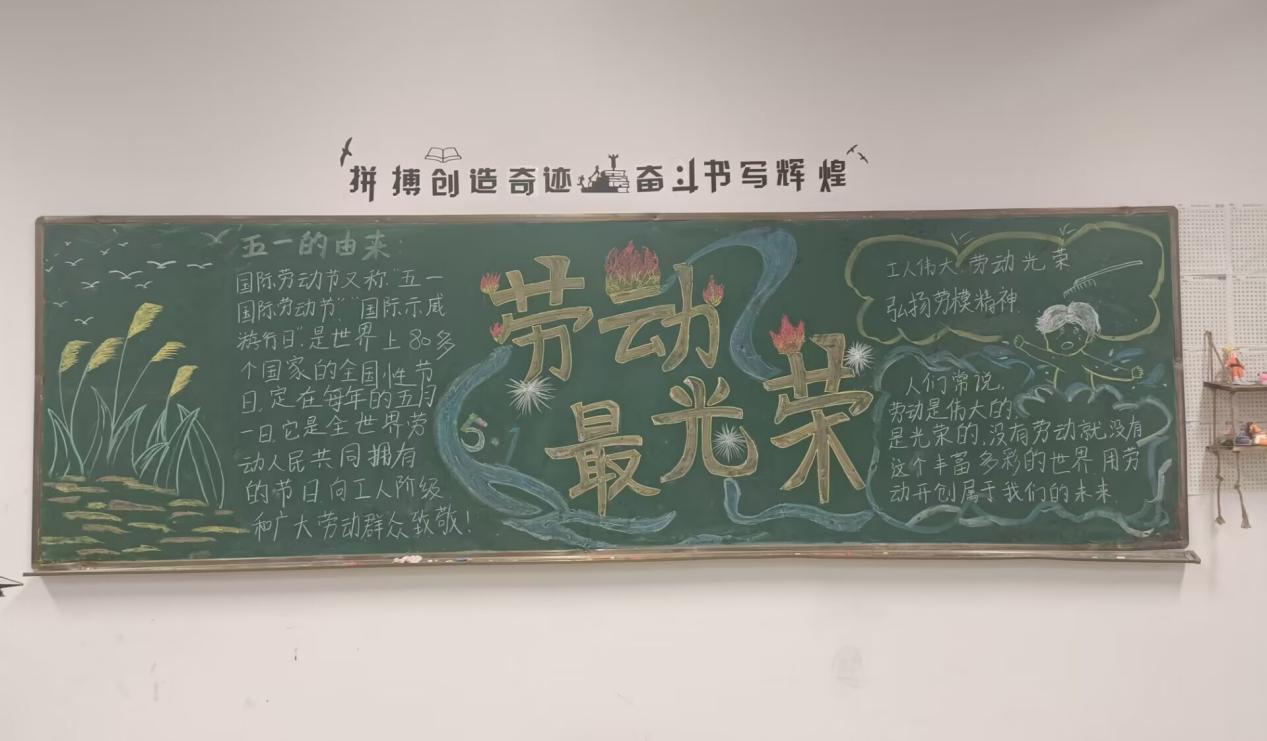 拼搏创造奇迹 奋斗书写辉煌
五一的由来:
国际劳动节又称“五一
国际劳动节”“国际示威
游行日”是世界上80多
个国家的全国性节
日.定在每年的五月
一日.它是全世界劳
动人民共同拥有
的节日向工人阶级
和广大劳动群众致敬!
劳动
最光荣
5.1
工人伟大.劳动光荣
弘扬劳模精神.
人们常说.
劳动是伟大的.
是光荣的.没有劳动就没有
这个丰富多彩的世界.用劳
动开创属于我们的未来.